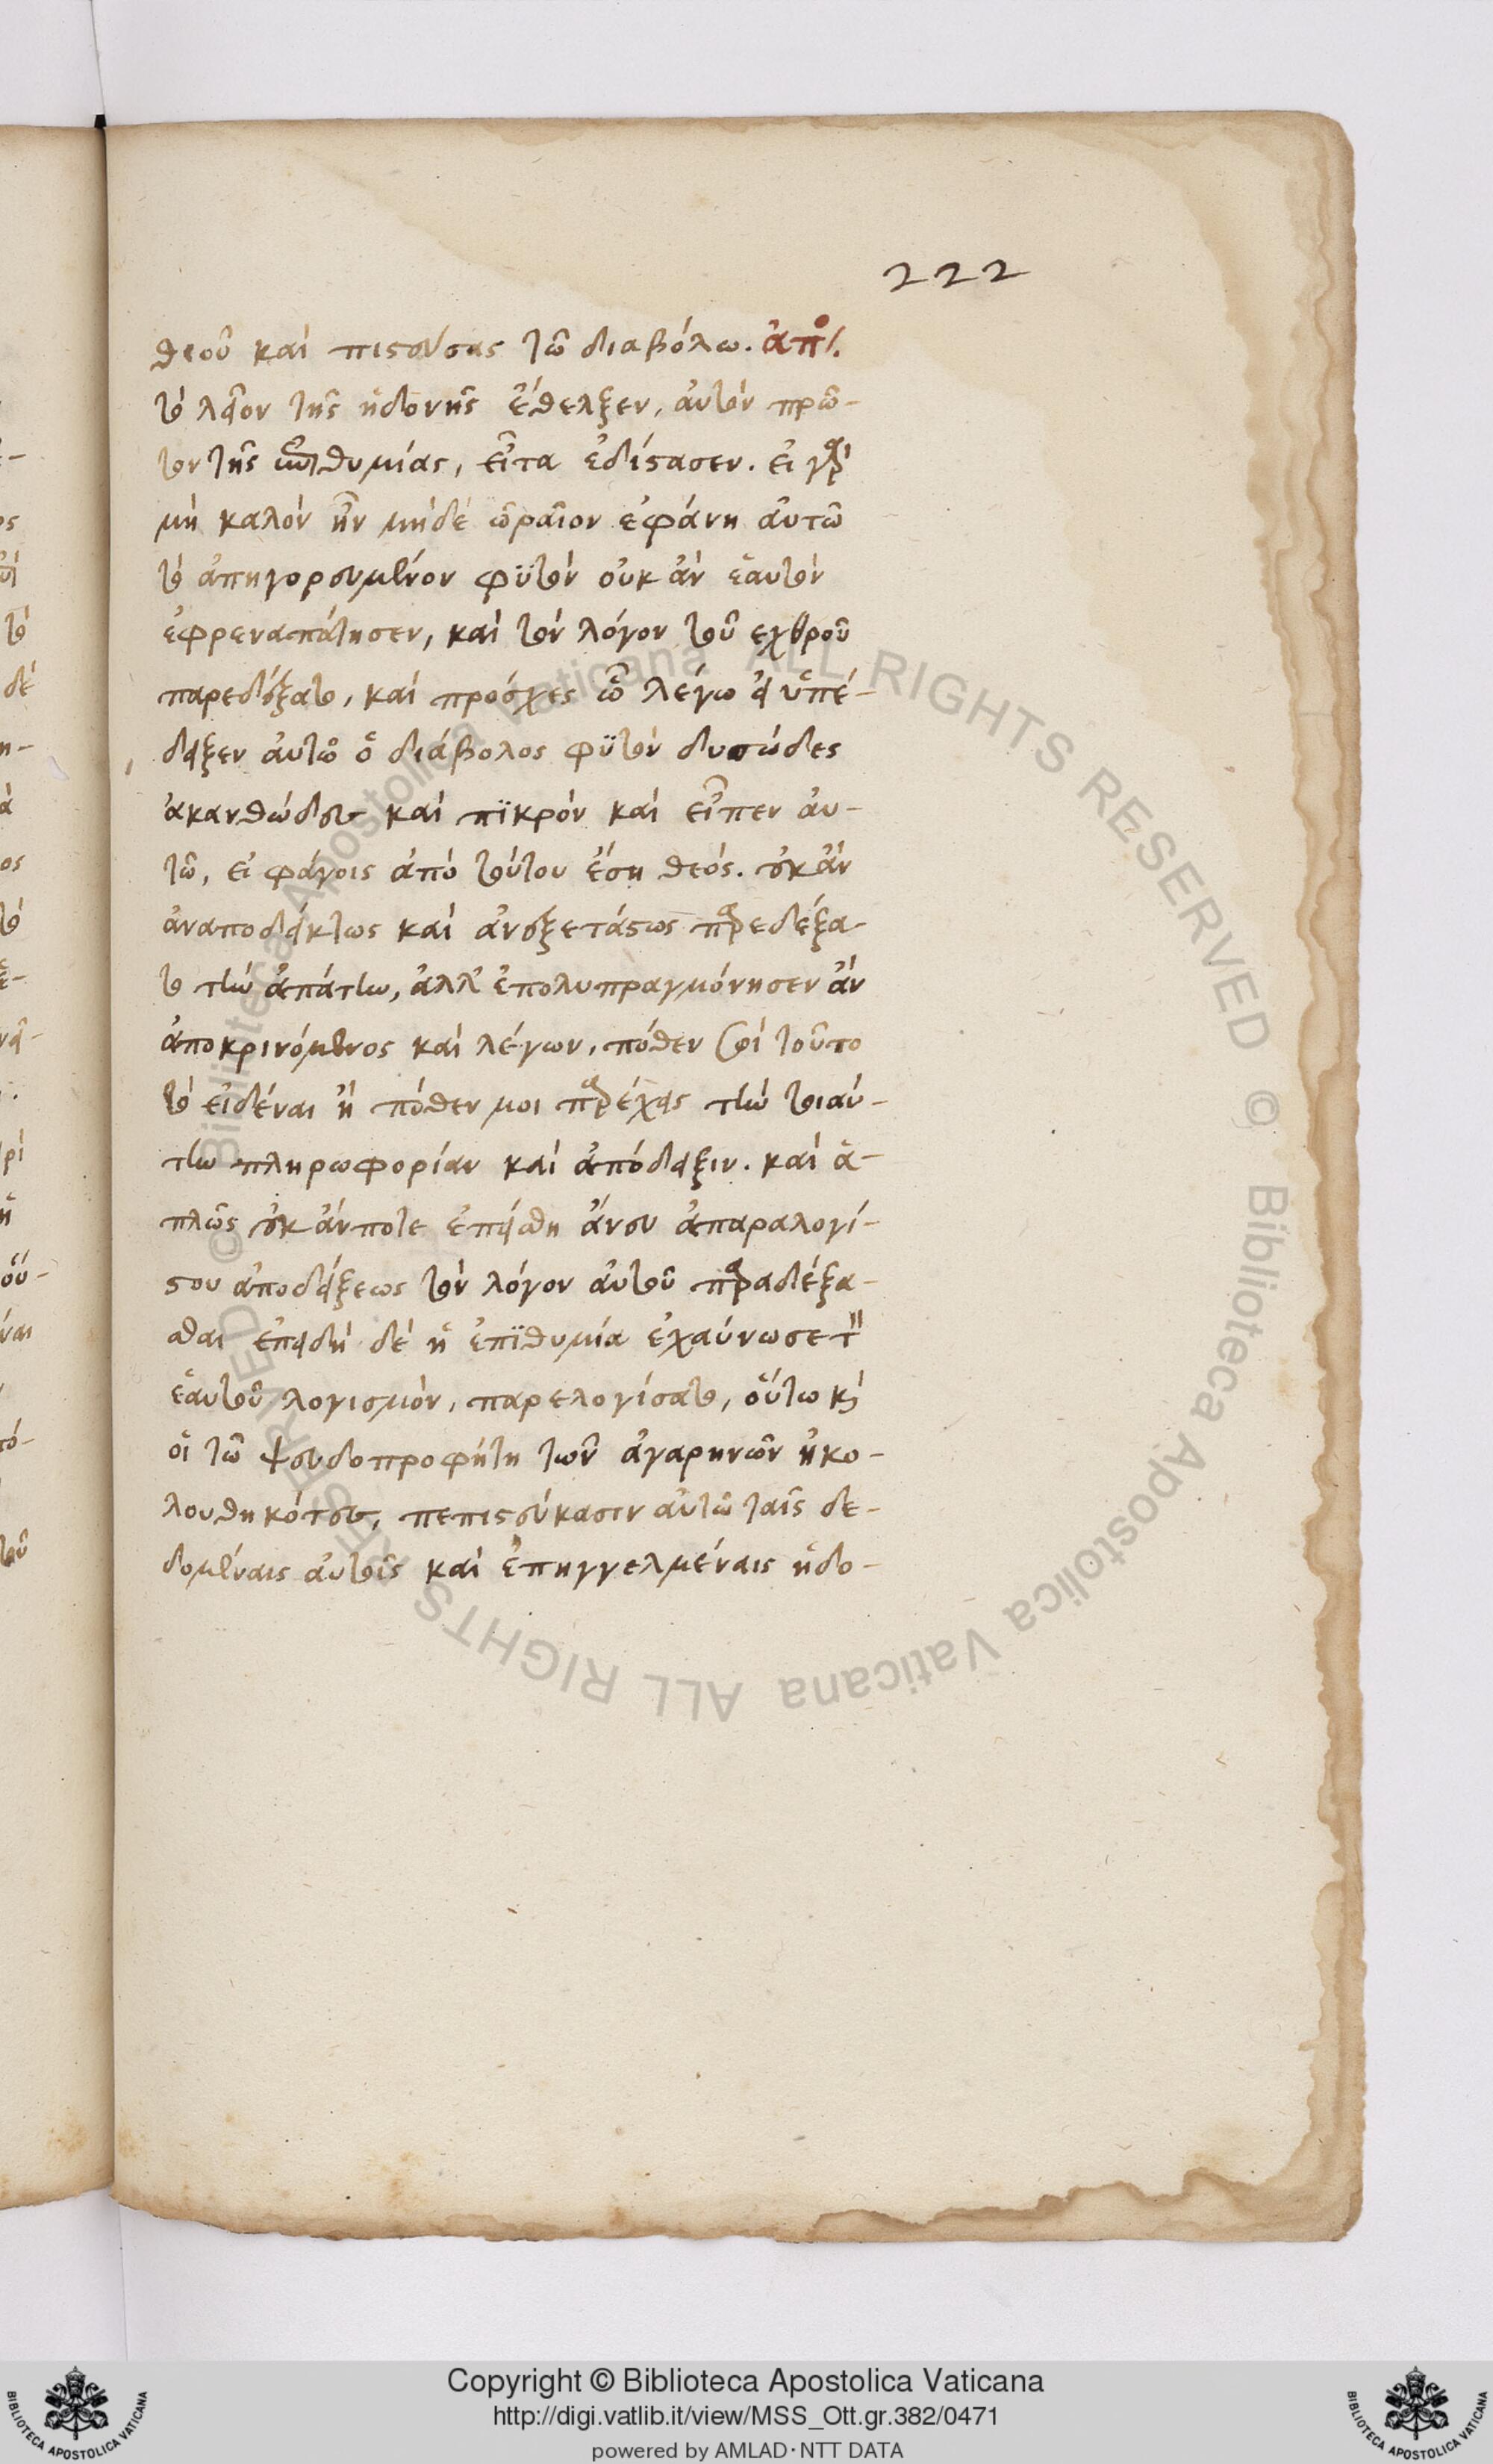 222
θεοῦ καὶ πιστεύσας τῶ διαβόλω. ἀπό/.
τὸ λεῖον τῆς ἡδονῆς ἔθελξεν, αὐτὸν πρῶ-
τον τῆς ἐπιθυμίας, εἶτα ἐδίστασεν. εἰ γὰρ
μὴ καλὸν ἦν μηδὲ ὡραῖον ἐφάνη αὐτῶ
τὸ ἀπηγορευμένον φϋτὸν οὐκ ἂν ἑαυτὸν
ἐφρεναπάτησεν, καὶ τὸν λόγον τοῦ εχθροῦ
παρεδέξατο, καὶ πρόσχες ὧ λέγω εἰ ὑπέ-
δειξεν αὐτῶ ὁ διάβολος φϋτὸν δυσώδες
ἀκανθώδες καὶ πϊκρὸν καὶ εἶπεν αὐ-
τῶ, εἰ φάγοις ἀπὸ τούτου ἔση θεός. οὐκ ἂν
ἀναποδείκτως καὶ ἀνεξετάστως παρεδέξα-
το τὴν ἀπάτην, ἀλλ' ἐπολυπραγμόνησεν ἂν
ἀποκρινόμενος καὶ λέγων, πόθεν σοὶ τοῦτο
τὸ εἰδέναι ἢ πόθεν μοι παρέχεις τὴν τοιαύ-
την πληρωφορίαν καὶ ἀπόδειξιν. καὶ ἁ-
πλῶς οὐκ ἄν ποτε ἐπείσθη ἄνευ ἀπαραλογί-
στου ἀποδείξεως τὸν λόγον αὐτοῦ παραδέξα-
σθαι ἐπειδὴ δὲ ἡ ἐπϊθυμία ἐχαύνωσε τὸν
ἑαυτοῦ λογισμὸν, παρελογίσατο, οὕτω καὶ
οἱ τῶ ψευδοπροφήτη τῶν ἀγαρηνῶν ἠκο-
λουθηκότες, πεπιστεύκασιν αὐτῶ ταῖς δε-
δομέναις αὐτοῖς καὶ ἐπηγγελμέναις ἡδο-
Copyright © Biblioteca Apostolica Vaticana
http://digi.vatlib.it/view/MSS_Ott.gr.382/0471
powered by AMLAD·NTT DATA